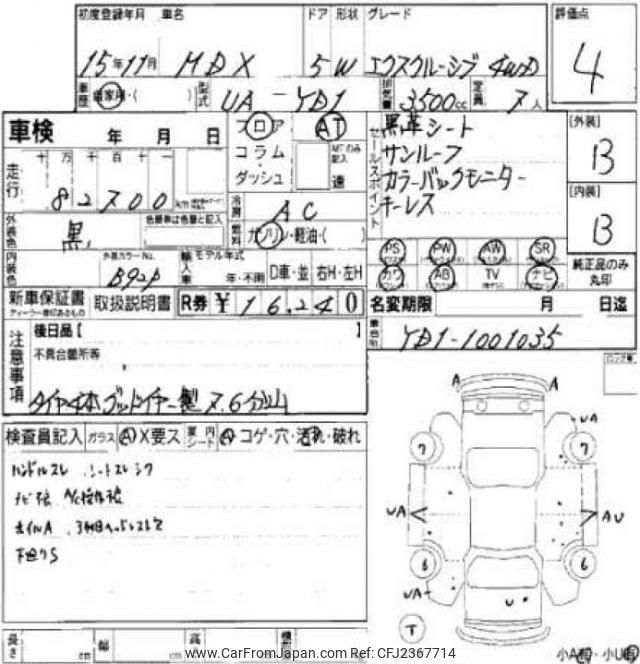 初度登録年月 車名 ドア 形状 グレード 評価点
15年11月 MDX 5W エクスクルーシブ 4WD 4
車歴 自家用・( ) 型式 UA-YD1 排気量 3500cc 定員 7人
車検 年 月 日 フロア AT 黒革シート [外装]
走行 十 万 千 百 十 一 コラム・ サンルーフ B
82700 km ダッシュ 速 カラーバックモニター
キーレス セールスポイント [内装]
冷房 AC B
外装色 黒 色替車は色番と記入 燃料 ガソリン・軽油・( )
内装色 外装カラーNo. B92P 輸入車 モデル年式 年・不明 D車・並 右H・左H
PS PW AW SR 純正品のみ丸印
カワ AB TV ナビ
新車保証書 取扱説明書 R券 ¥16240 名変期限 月 日迄
注意事項 後日品[ ] 車台No. YD1-1001035
不具合箇所等
タイヤ4本グッドイヤー製 7.6分山
検査員記入 ガラス A X要ス 室内シート A コゲ・穴・汚れ・破れ
ハンドルスレ シートスレシワ
下廻りS
A A
UA
7 7
UA AU
6 6
UA
U
T
長さ cm 幅 cm 高
www.CarFromJapan.com Ref:CFJ2367714